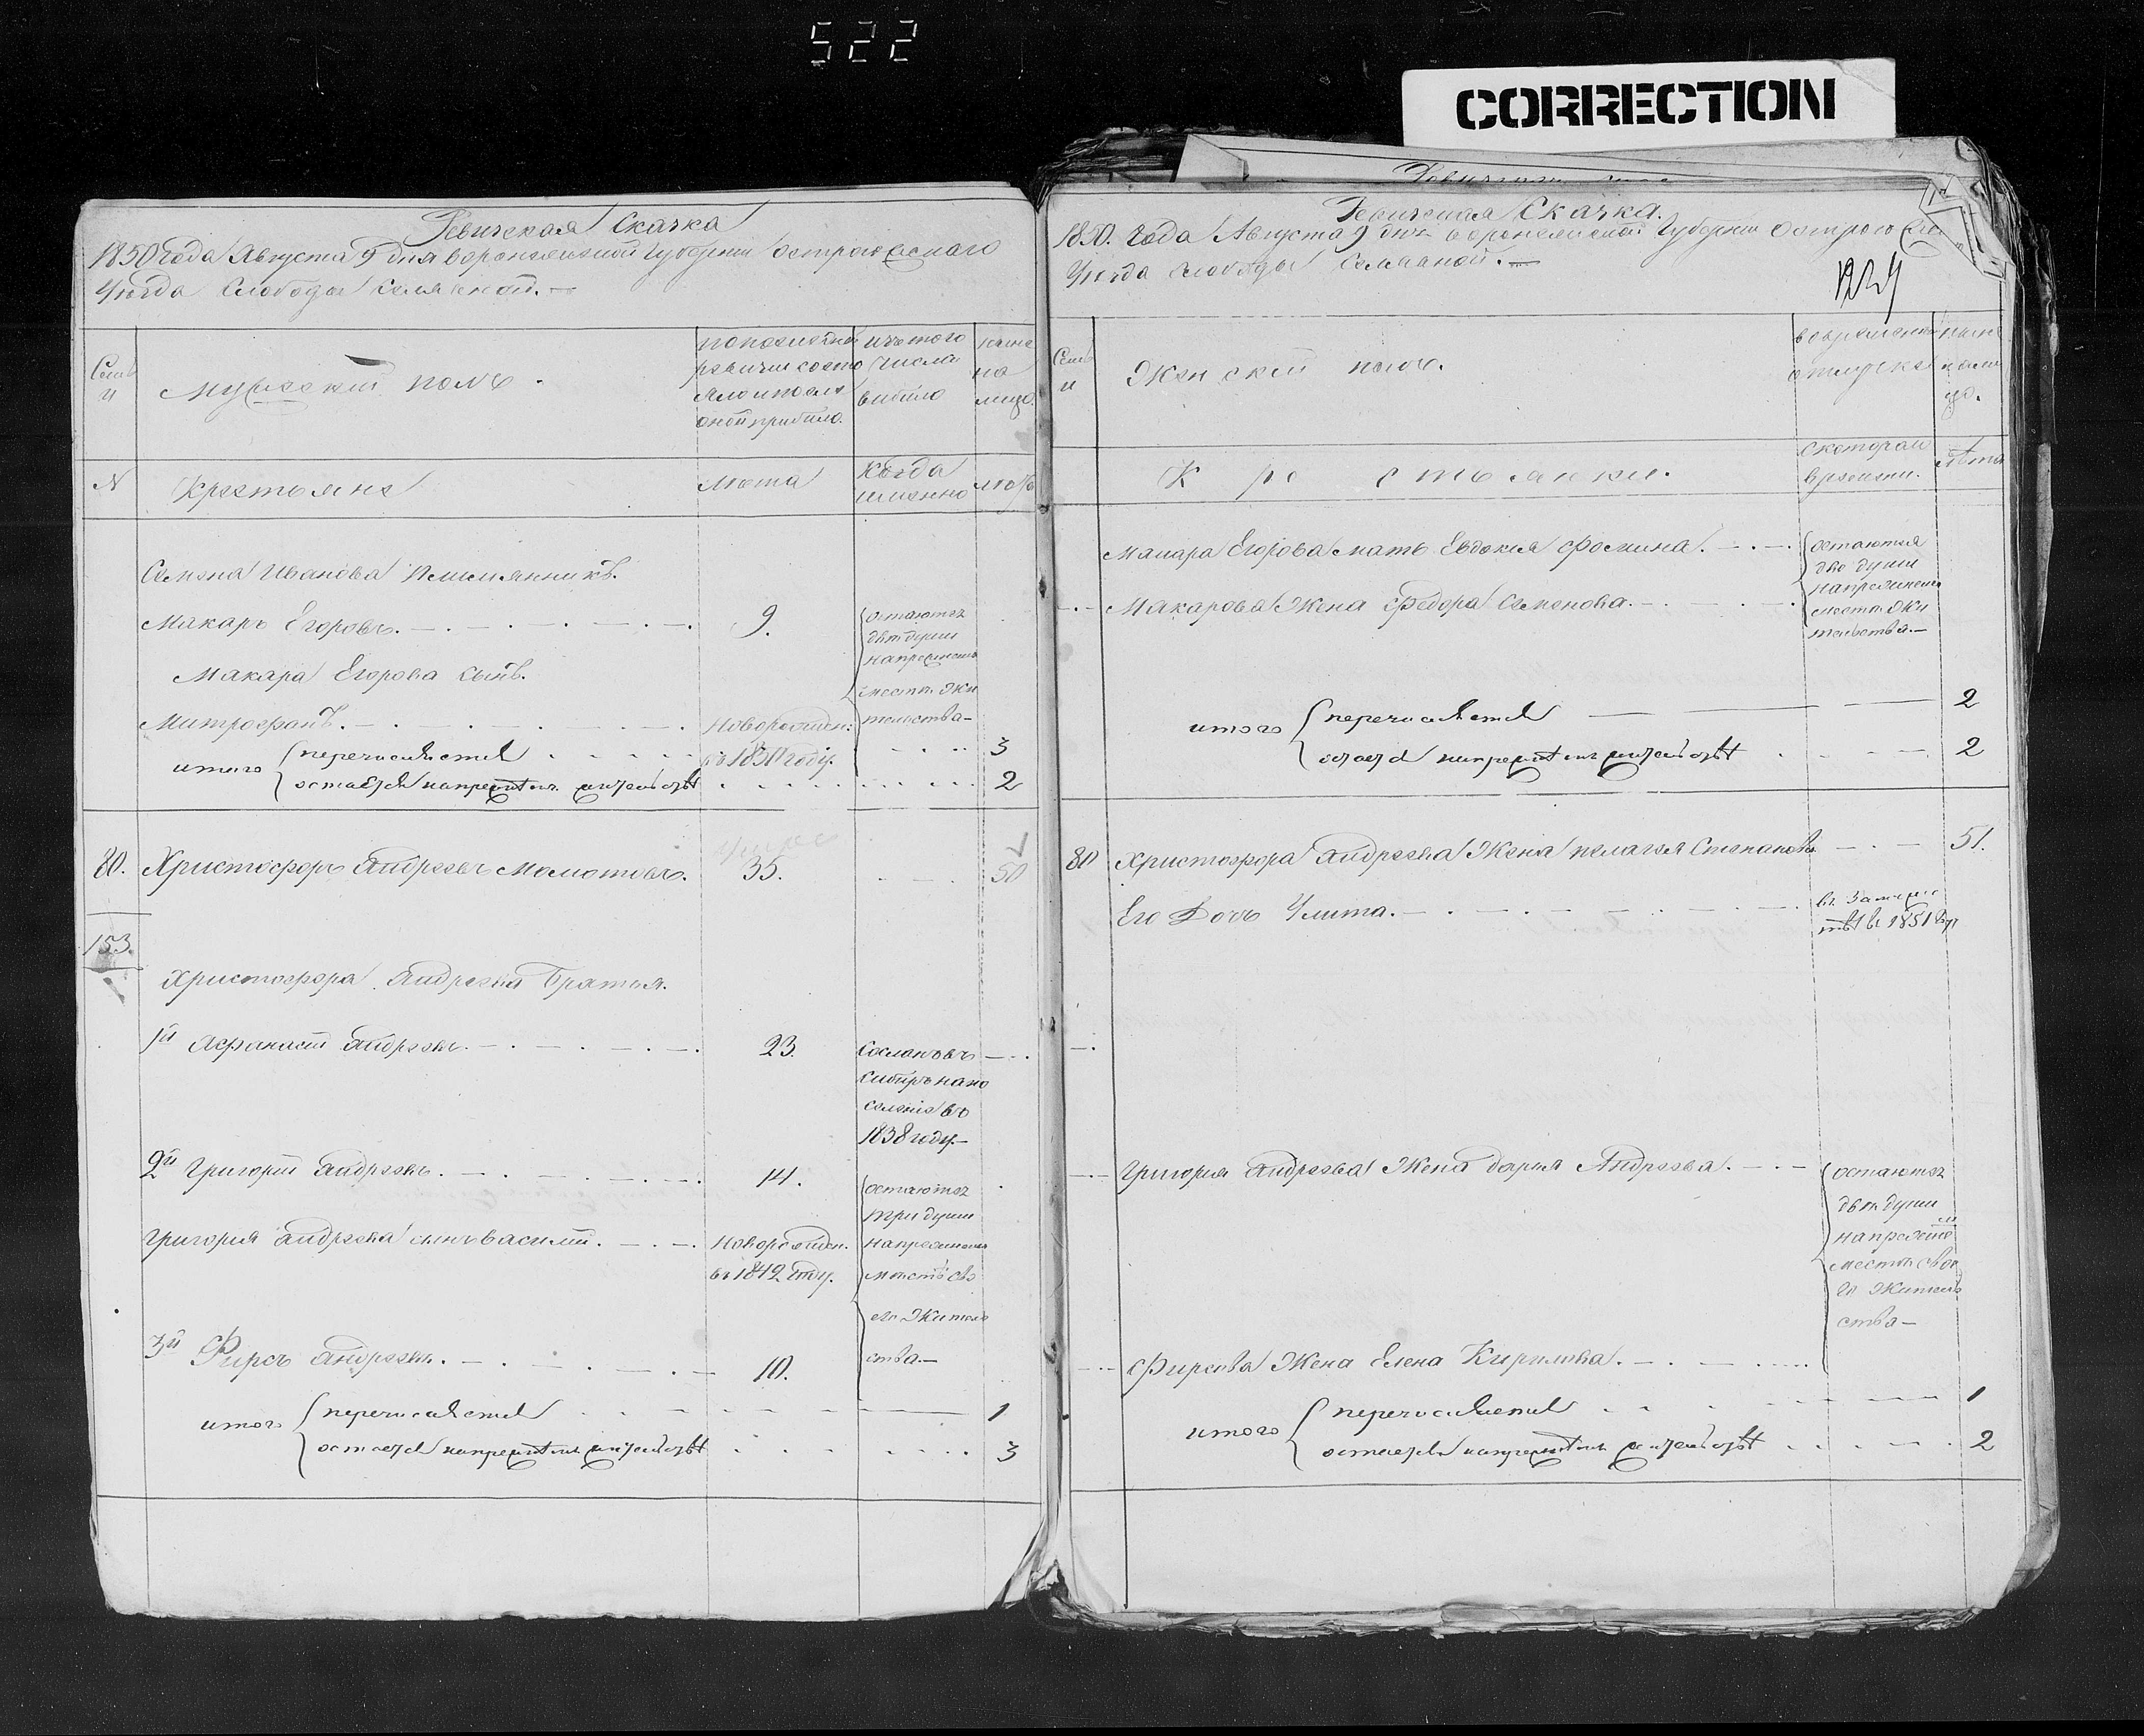 522
CORRECTION
Ревизская Скачка
1850 года Августа 9 дня воронежской Губернии острогожскаго
Уезда Слободы
Семьи
Мужеский полъ.
по последней ревизии состояло и после оной прибыло.
изъ того числа выбыло
ныне на лицо.
№
Крестьяне
Лета
Когда именно
Лета
Семена Иванова племянникъ.
Макаръ Егоровъ.
9.
остаются две души на прежнемъ месте жительства
Макара Егорова сынъ.
Митрофанъ.
новорожден: въ 1850 году.
итого
перечисляется
3
остается на прежнем жительстве
2
80.
Христофоръ Андреевъ Мамотовъ.
35.
50
153.
Христофора Андреева Братья.
1й Афанасий Андреевъ.
23.
Сосланъ въ сибирь на поселение въ 1838 году.
2й Григорий Андреевъ.
14.
остаются три души на прежнем месте своего жительства
Григория Андреева сынъ василий.
новорожден. въ 1842 году.
3й Фирсъ Андреевъ.
10.
итого
перечисляется
1
остается на прежнем жительстве
3
Ревизская Скачка.
1850. года Августа 9 дня воронежской Губернии
Уезда слободы
Семьи
Женский полъ.
во временной отлучке
ныне на лицо.
Крестьянки.
С котораго времени.
лета
Макара Егорова мать Евдокия Фомина.
остаются две души на прежнем месте жительства.
Макарова Жена Федора Семенова.
итого
перечисляется
2
остается на прежнем жительстве
2
80
Христофора Андреева Жена пелагея Степанова
51.
Его Дочь Улита.
въ замужестве въ 1851 году
Григория Андреева Жена дарья Андреева.
остаются две души на прежнем месте своего жительства
Фирсова Жена Елена Кирилова.
итого
перечисляется
1
остается на прежнем жительстве
2